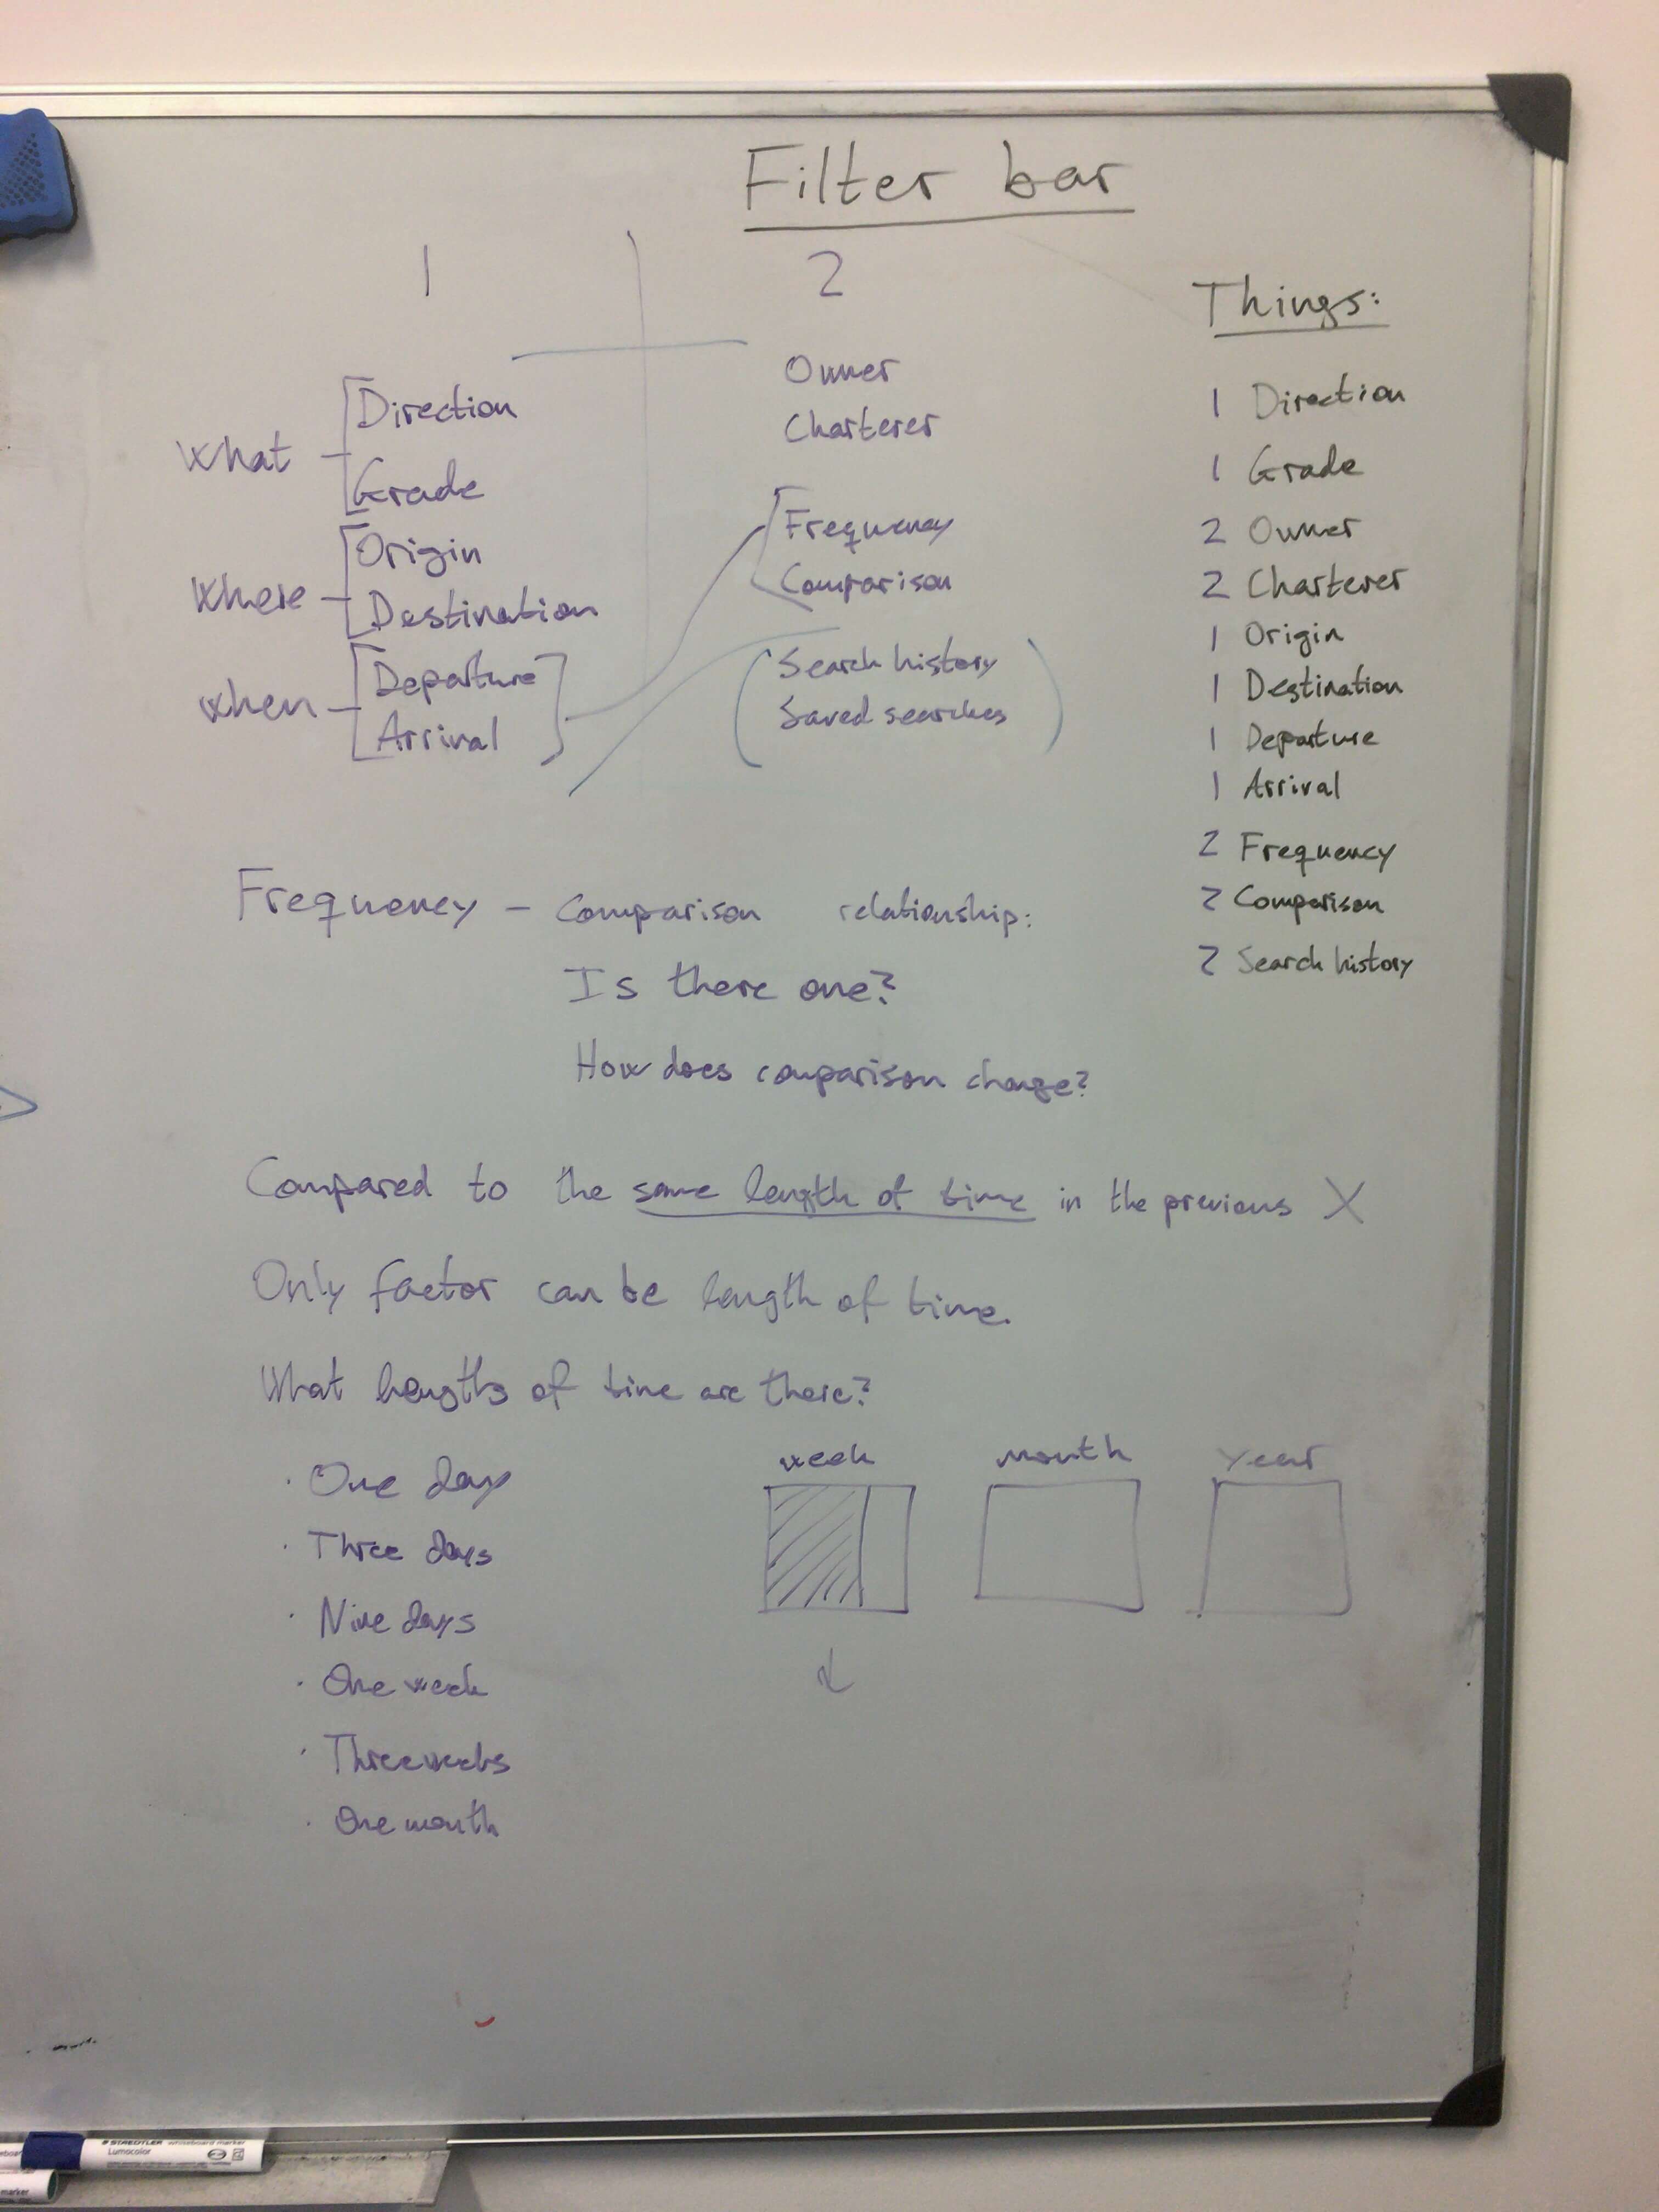 Filter bar
1
2
What
Direction
Grade
Where
Origin
Destination
When
Departure
Arrival
Owner
Charterer
Frequency
Comparison
Search history
Saved searches
Things:
1 Direction
1 Grade
2 Owner
2 Charterer
1 Origin
1 Destination
1 Departure
1 Arrival
2 Frequency
2 Comparison
2 Search history
Frequency - Comparison relationship:
Is there one?
How does comparison change?
Compared to the same length of time in the previous X
Only factor can be length of time.
What lengths of time are there?
· One day
· Three days
· Nine days
· One week
· Three weeks
· One month
week
month
year
STAEDTLER whiteboard marker
Lumocolor
marker